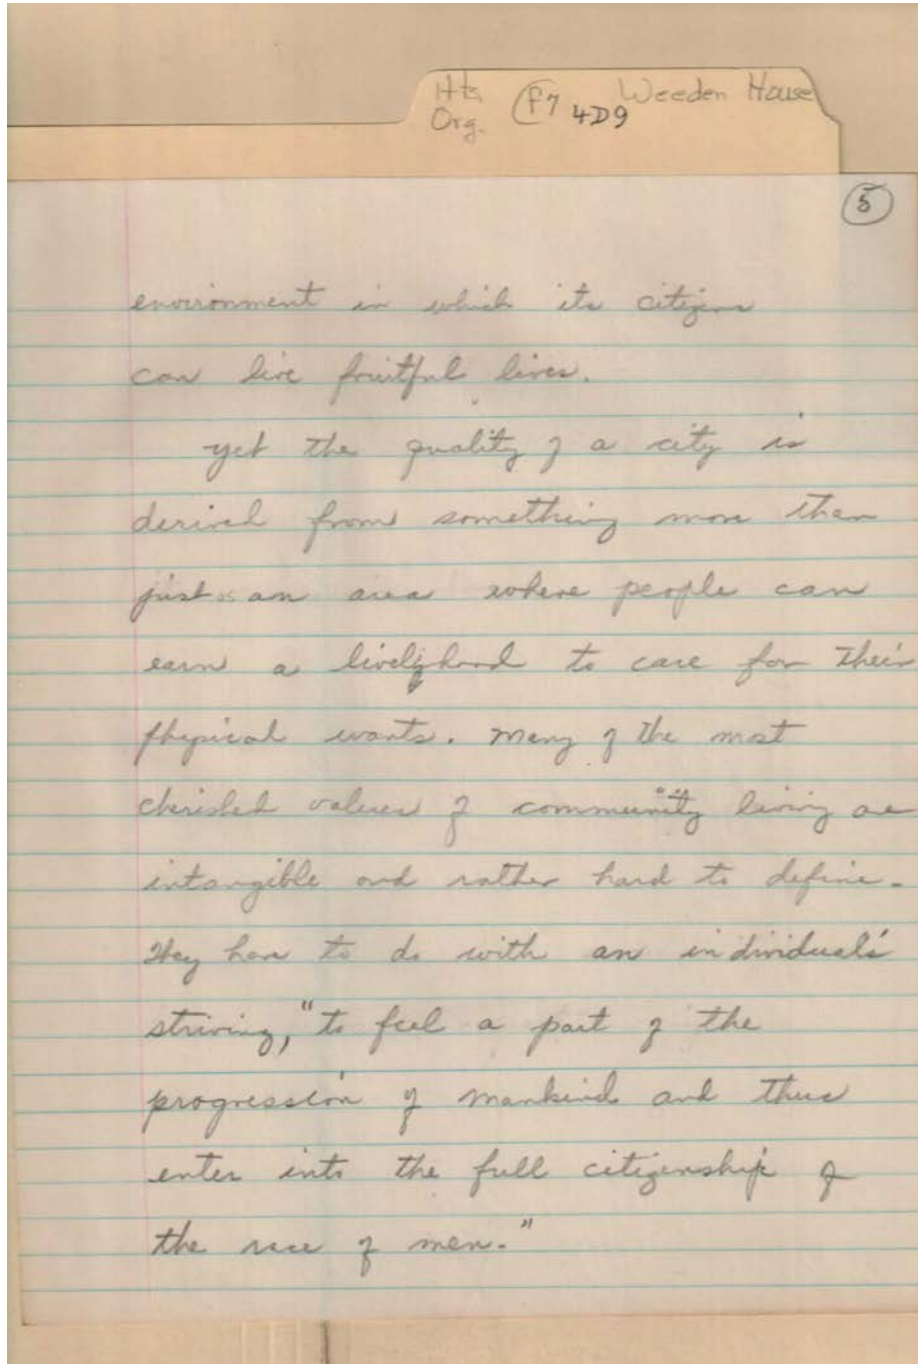 Hts. Org. F7 4D9 Weeden House
5
environment in which its citizens
can live fruitful lives.
yet the quality of a city is
derived from something more than
just as an area where people can
earn a livelyhood to care for their
physical wants. Many of the most
cherished values of community living are
intangible and rather hard to define.
They have to do with an individual's
striving, "to feel a part of the
progression of mankind and thus
enter into the full citizenship of
the race of men."